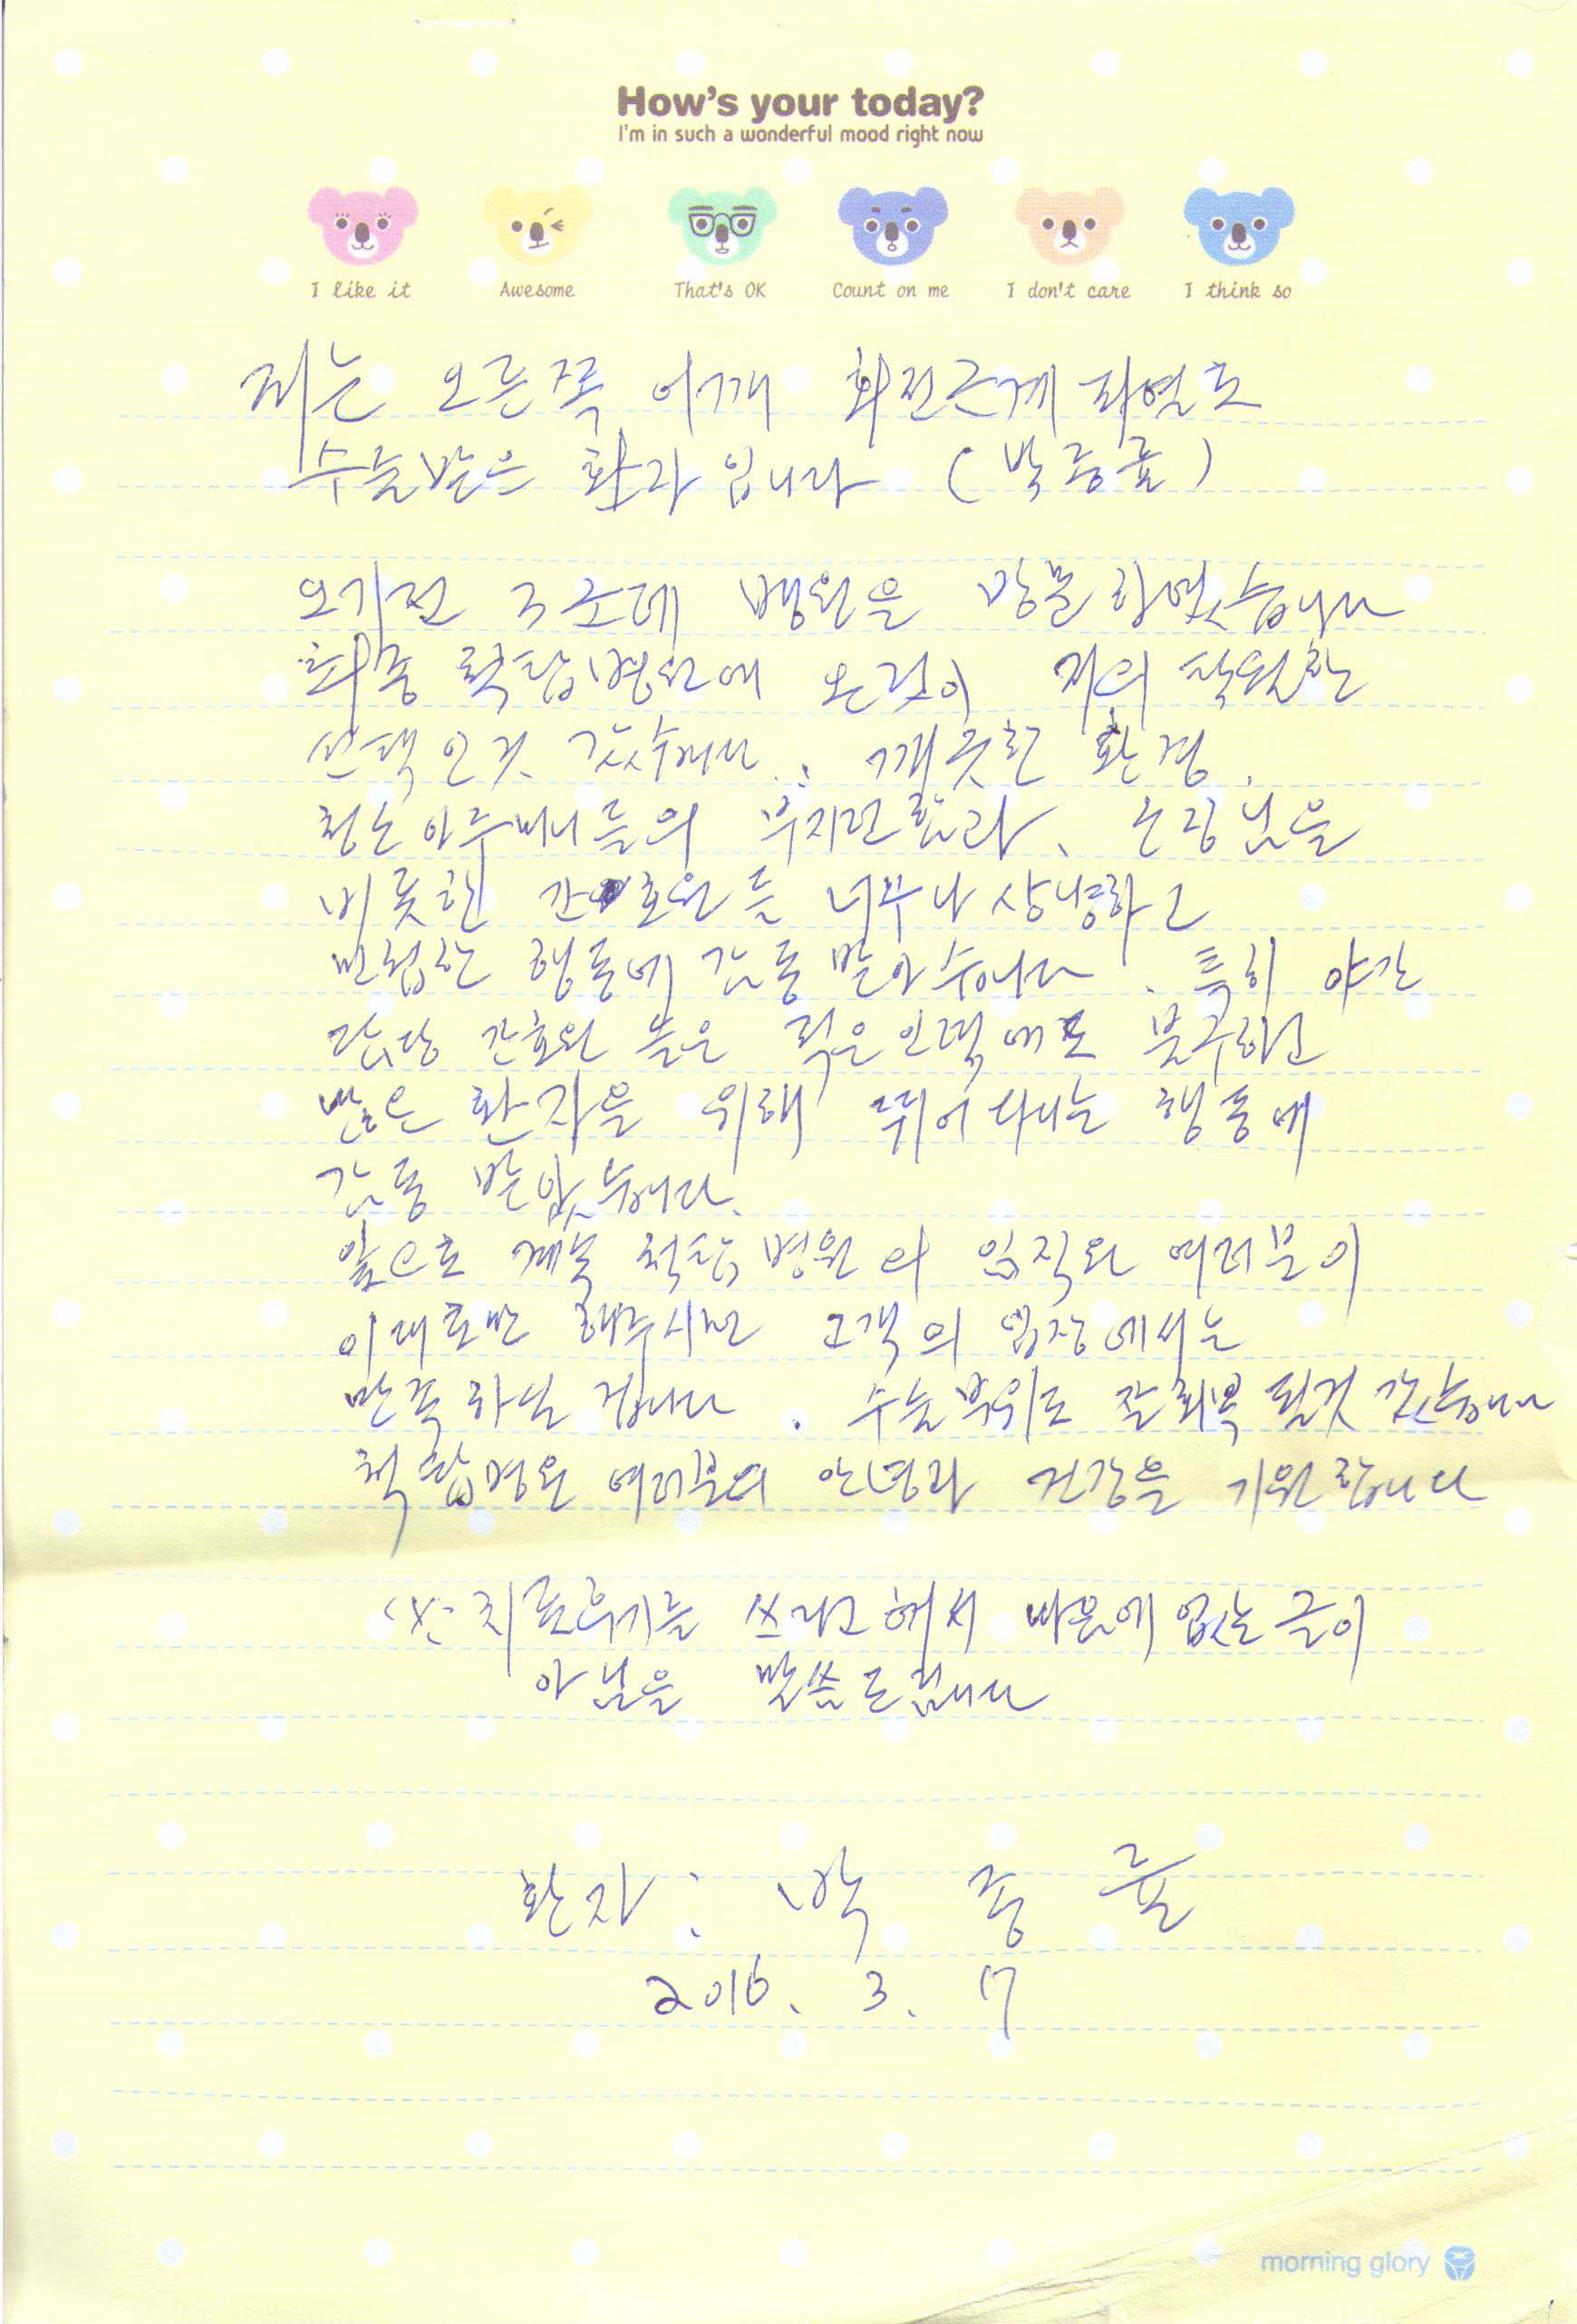 How's your today?
I'm in such a wonderful mood right now
I like it Awesome That's OK Count on me I don't care I think so
저는 오른쪽 어깨 회전근개 파열로
수술받은 환자 입니다 (박종률)
오기전 3군데 병원을 방문하였습니다
최종 척탑병원에 온것이 저의 탁월한
선택인것 같습니다. 깨끗한 환경.
청소아주머니들의 부지런함과、 원장님을
비롯한 간호원들 너무나 상냥하고
민첩한 행동에 감동 받았습니다. 특히 야간
담당 간호원 들은 적은인력에도 불구하고
많은 환자를 위해 뛰어 다니는 행동에
감동 받았습니다.
앞으로 계속 척탑병원의 임직원 여러분이
이대로만 해주시면 고객의 입장에서는
만족하실 겁니다. 수술부위도 잘회복 될것 같습니다
척탑병원 여러분의 안녕과 건강을 기원합니다
치료후기를 쓰라고해서 마음에없는글이
아님을 말씀드립니다
환자 : 박 종 률
2016. 3. 17
morning glory